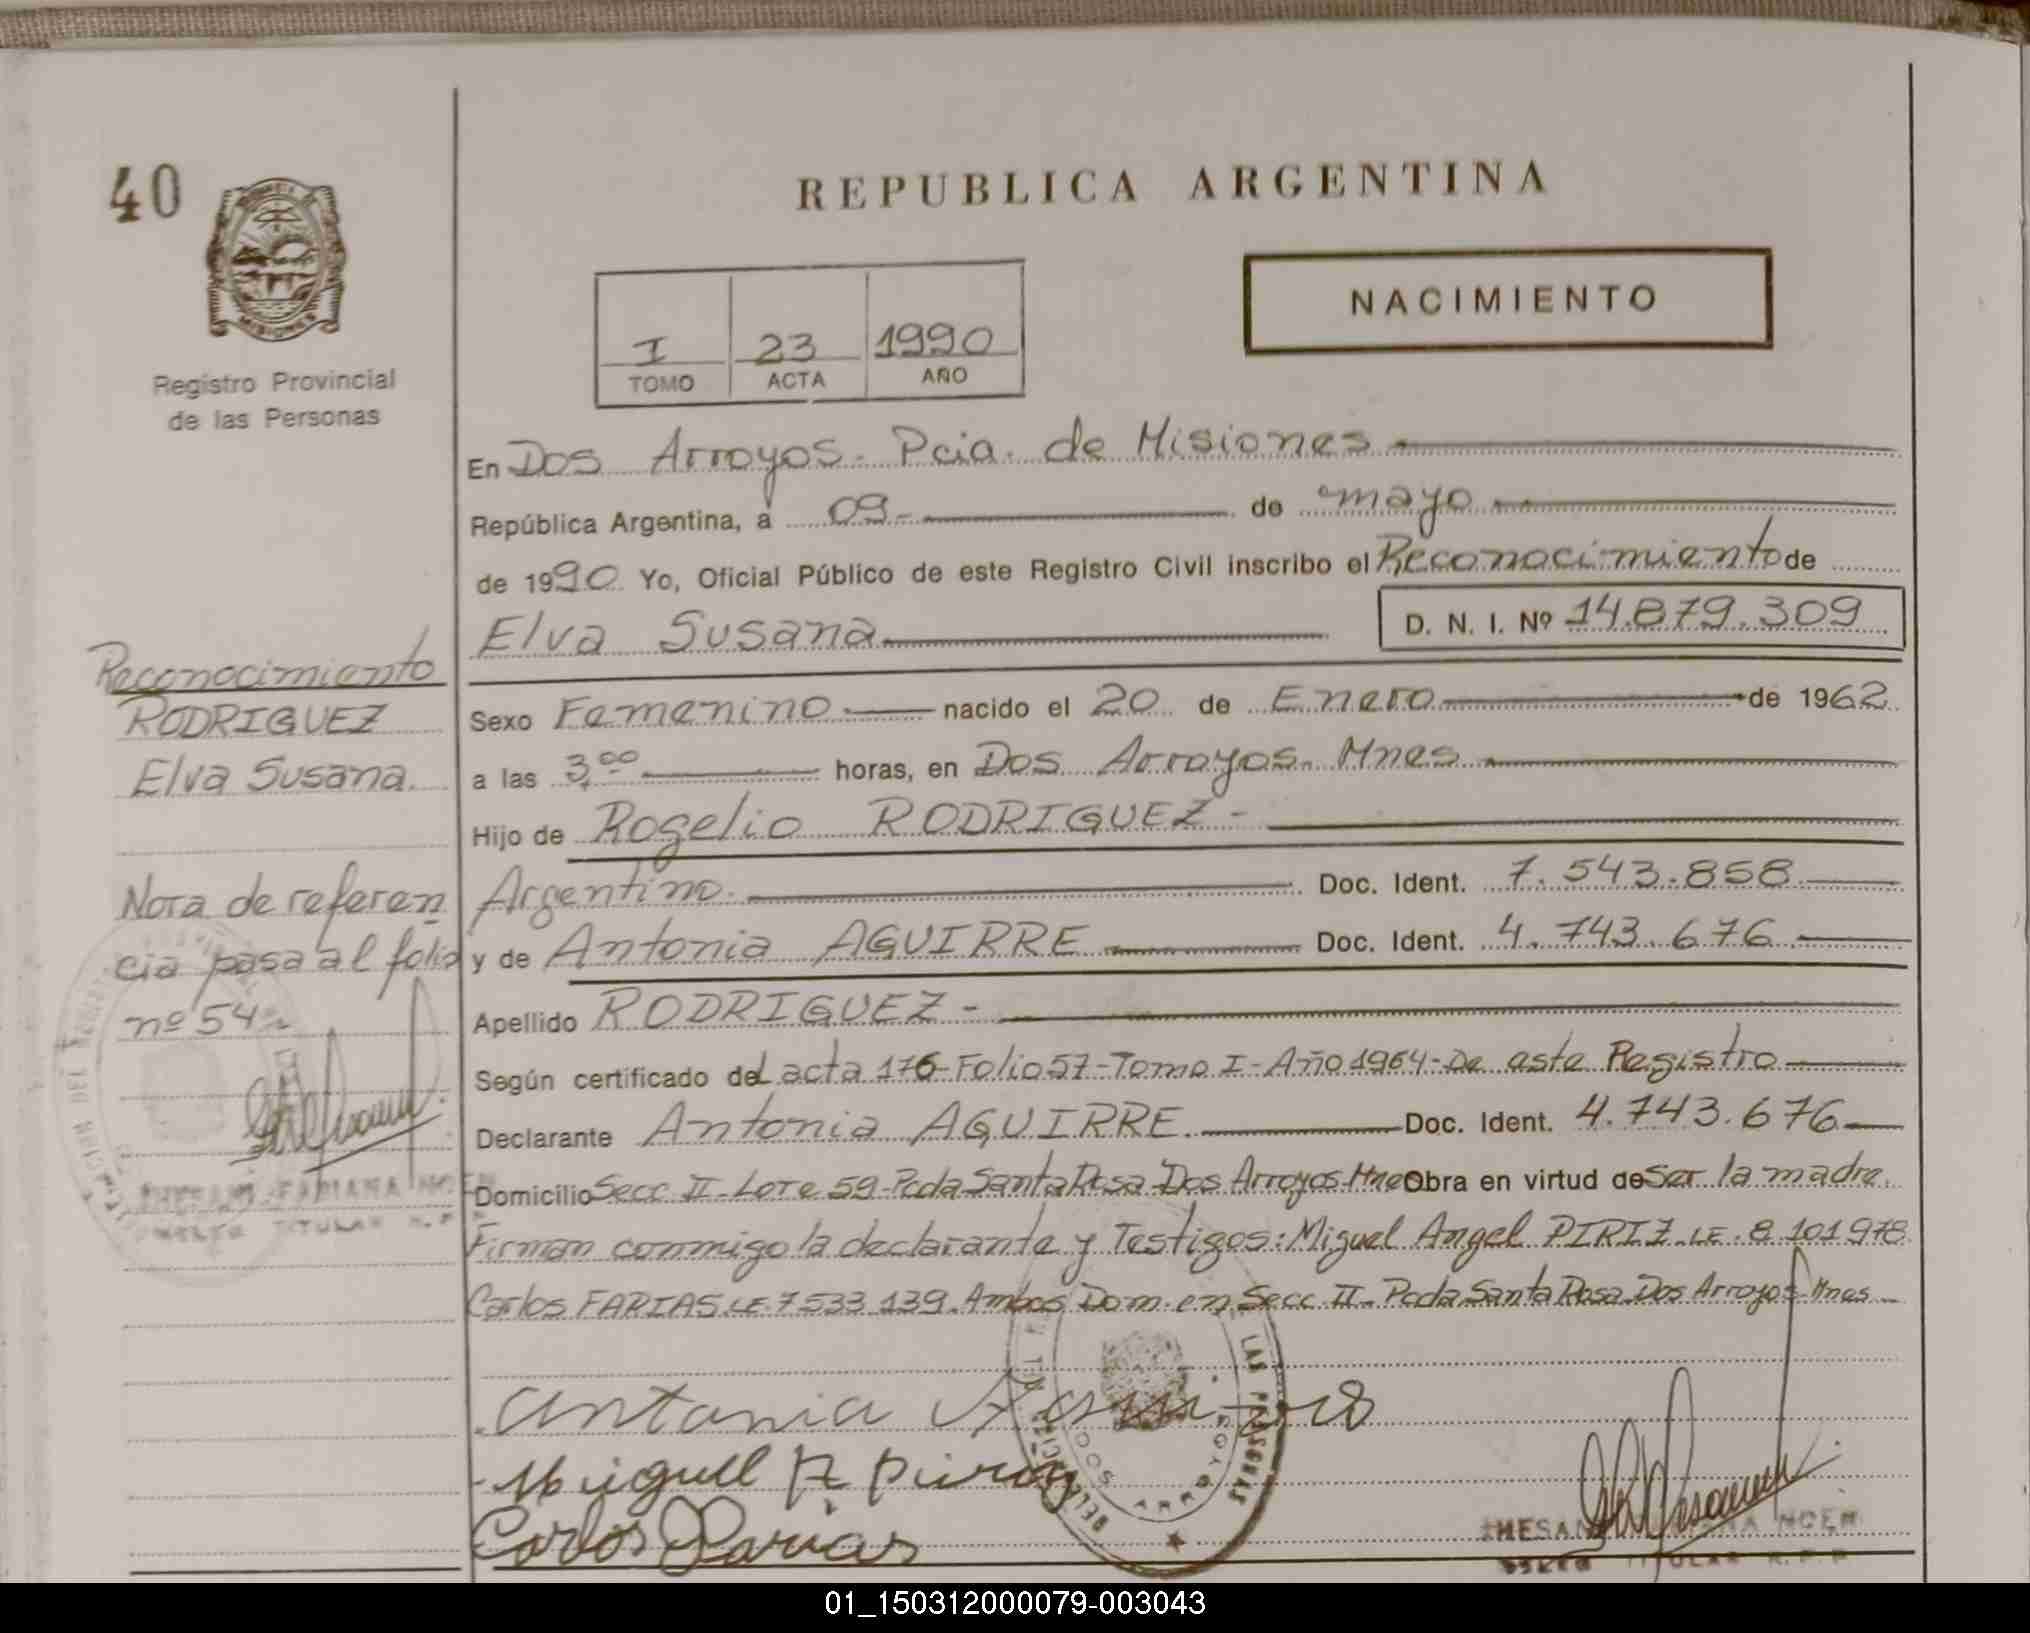 40
REPUBLICA ARGENTINA
MISIONES
Registro Provincial
de las Personas
NACIMIENTO
I 23 1990
TOMO ACTA AÑO
En Dos Arroyos. Pcia. de Misiones
República Argentina, a 09 de mayo
de 1990 Yo, Oficial Público de este Registro Civil inscribo el Reconocimiento de
Elva Susana D. N. I. Nº 14.879.309
Reconocimiento
RODRIGUEZ
Elva Susana.
Nota de referen
cia pasa al folio
nº 54
Sexo Femenino nacido el 20 de Enero de 1962
a las 3,00 horas, en Dos Arroyos. Mnes
Hijo de Rogelio RODRIGUEZ -
Argentino. Doc. Ident. 7.543.858
y de Antonia AGUIRRE Doc. Ident. 4.743.676
Apellido RODRIGUEZ -
Según certificado del acta 176-Folio 57-Tomo I-Año 1964-De este Registro
Declarante Antonia AGUIRRE. Doc. Ident. 4.743.676
Domicilio Secc II-Lote 59-Pcda Santa Rosa Dos Arroyos Mnes Obra en virtud de ser la madre.
Firman conmigo la declarante y Testigos: Miguel Angel PIRIZ LE. 8 101 978
Carlos FARIAS LE 7 533 139. Ambos Dom. en Secc II- Pcda Santa Rosa Dos Arroyos Mnes
Antonia
Miguel A
Carlos Farias
DOS ARROYOS
LAS PERSONAS
FABIANA NOEM
TITULAR R.P.P
TITULAR R.P.P
01_150312000079-003043